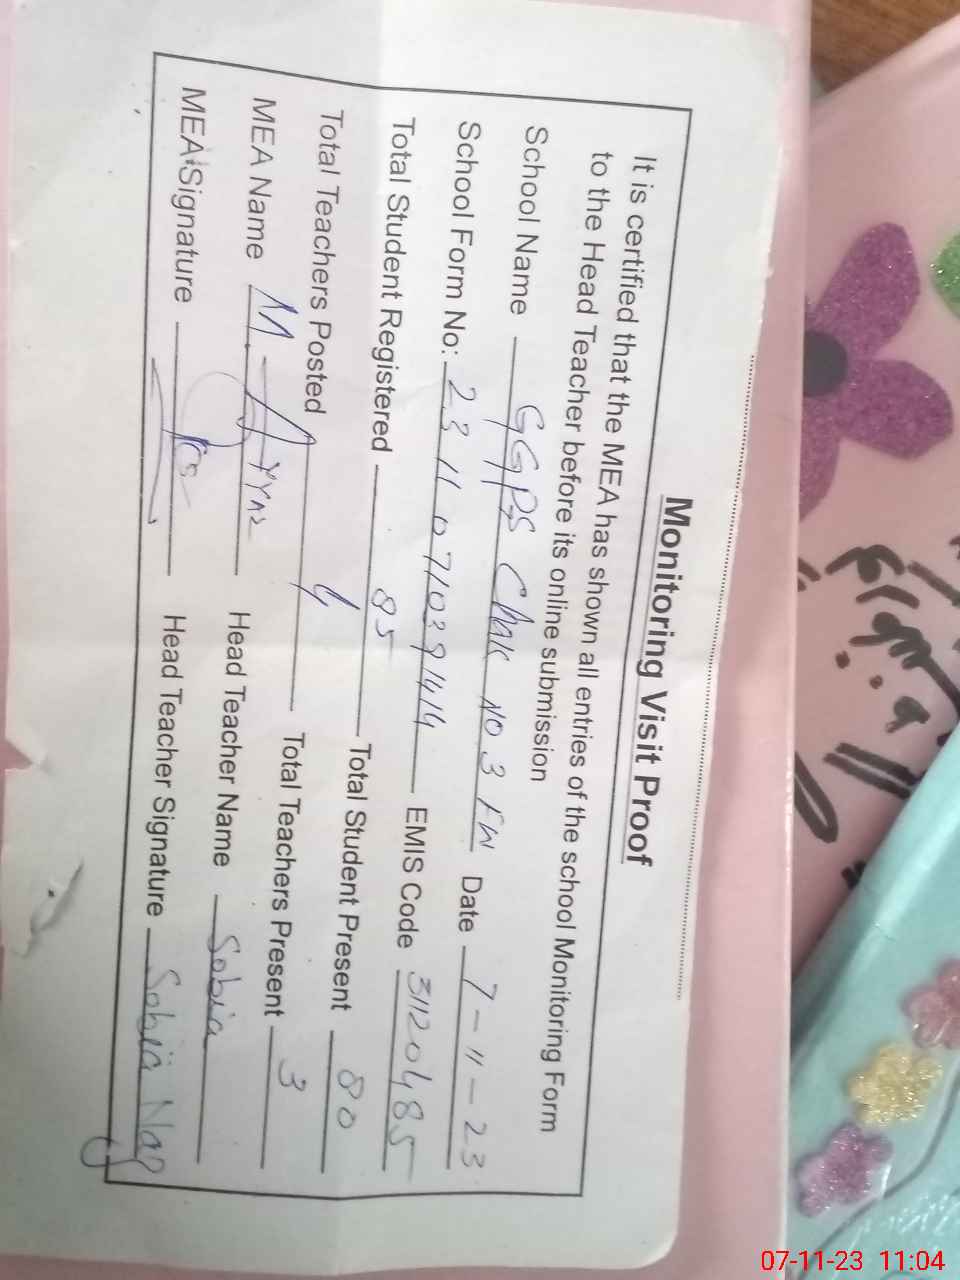 Monitoring Visit Proof
It is certified that the MEA has shown all entries of the school Monitoring Form
to the Head Teacher before its online submission
School Name GGPS Chak No 3 FW Date 7-11-23
School Form No: 2311071039144 EMIS Code 31120485
Total Student Registered 85 Total Student Present 80
Total Teachers Posted 4 Total Teachers Present 3
MEA Name M. Head Teacher Name Sobia
MEA Signature Head Teacher Signature Sobia
07-11-23 11:04